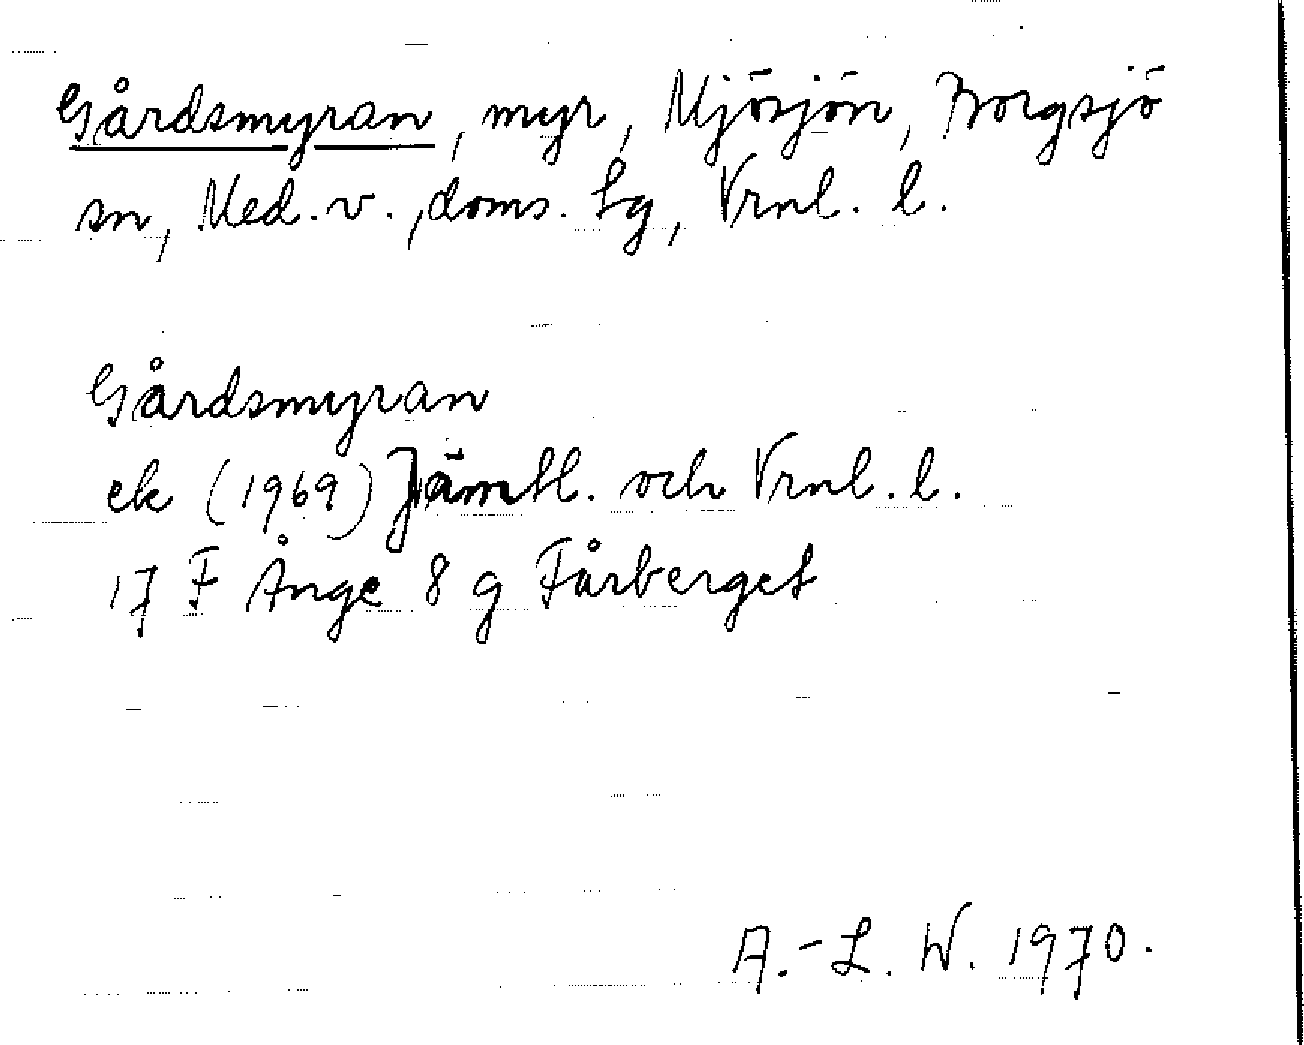 Gårdsmyran, myr, Mjösjön, Borgsjö
sn, Med. v., doms. Lg, Vrnl. l.
Gårdsmyran
ek (1969) Jämtl. och Vrnl. l.
17 F Ånge 8 g Fårberget
A.-L. W. 1970.